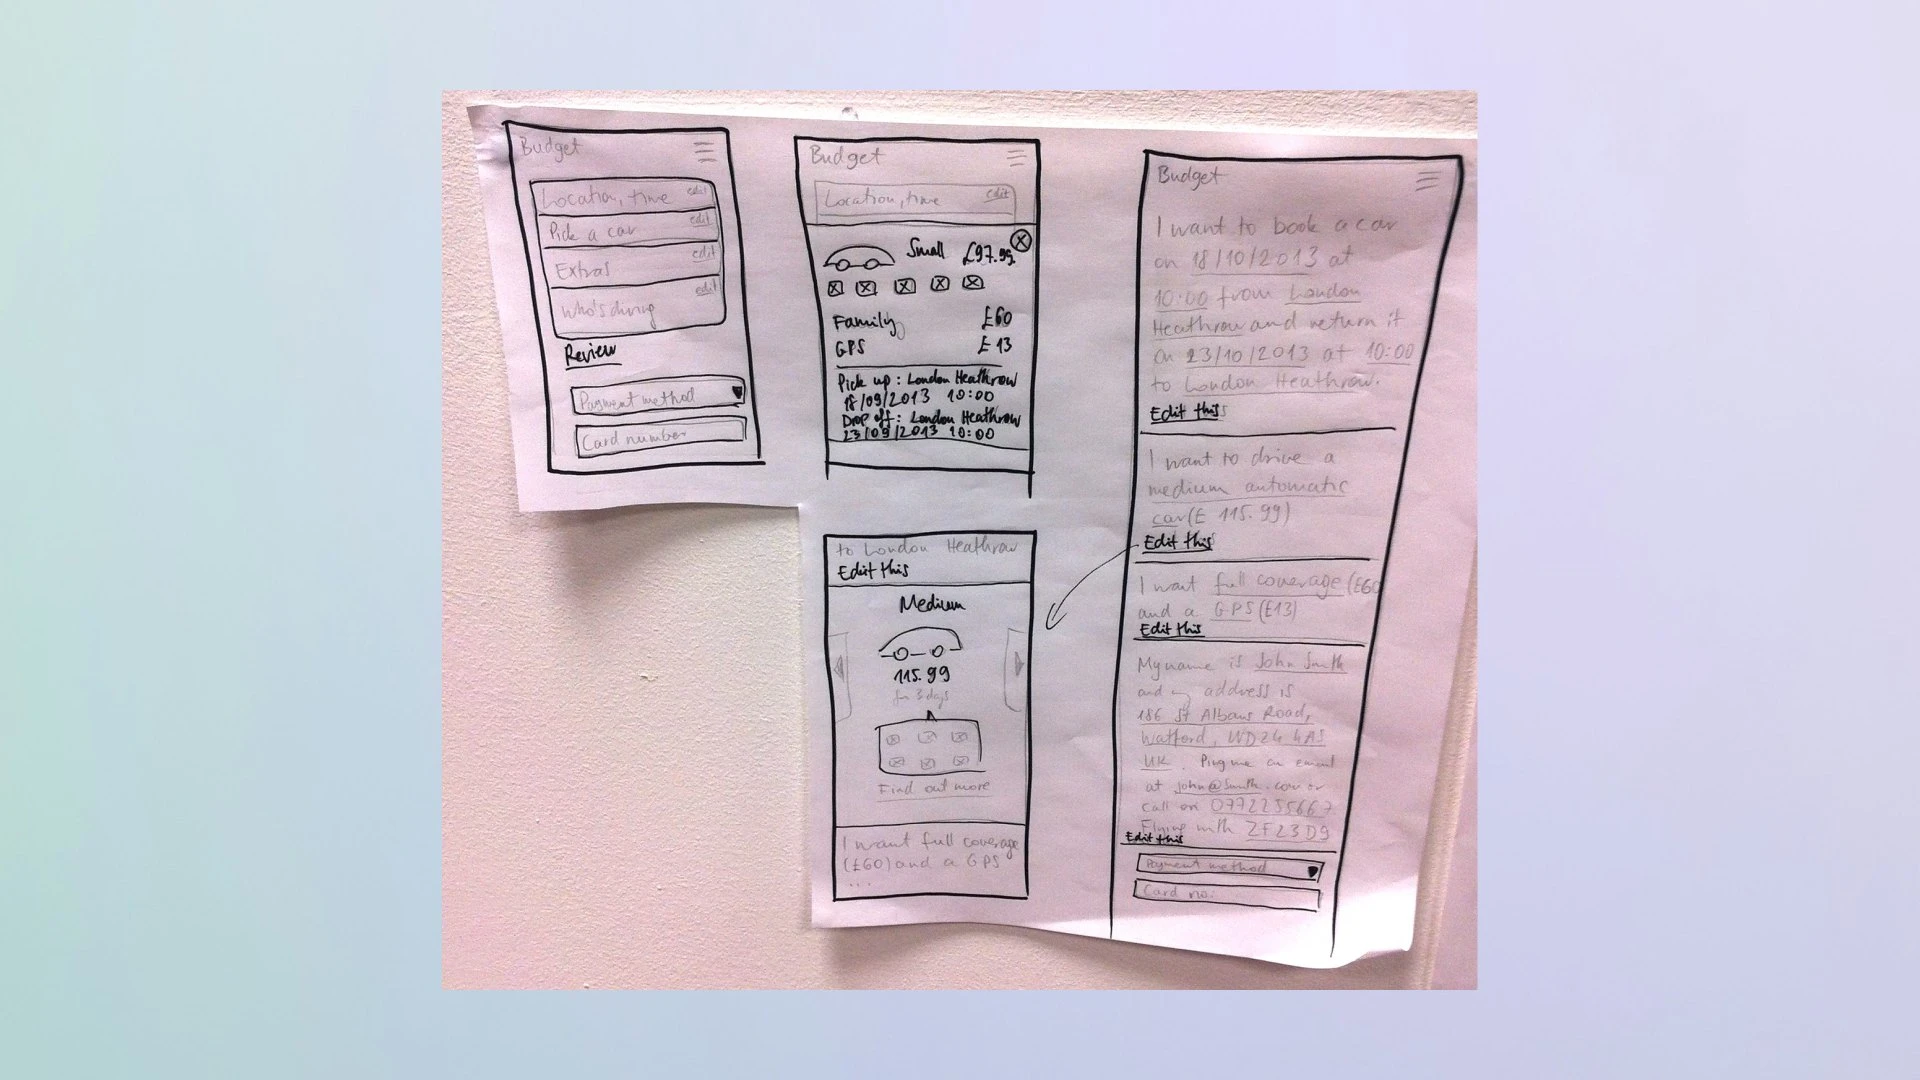 Budget
Location, time edit
Pick a car edit
Extras edit
Who's driving edit
Review
Payment method
Card number
Budget
Location, time edit
Small £97.99
Family £60
GPS £13
Pick up: London Heathrow
18/09/2013 10:00
Drop off: London Heathrow
23/09/2013 10:00
to London Heathrow
Edit this
Medium
115.99
for 3 days
Find out more
I want full coverage
(£60) and a GPS
...
Budget
I want to book a car
on 18/10/2013 at
10:00 from London
Heathrow and return it
on 23/10/2013 at 10:00
to London Heathrow.
Edit this
I want to drive a
medium automatic
car (£ 115.99)
Edit this
I want full coverage (£60
and a GPS (£13)
Edit this
My name is John Smith
and my address is
186 St Albans Road,
Watford, WD24 4AS
UK. Ping me an email
at john@smith.com or
call on 0772255667
Flying with ZF23D9
Edit this
Payment method
Card no.